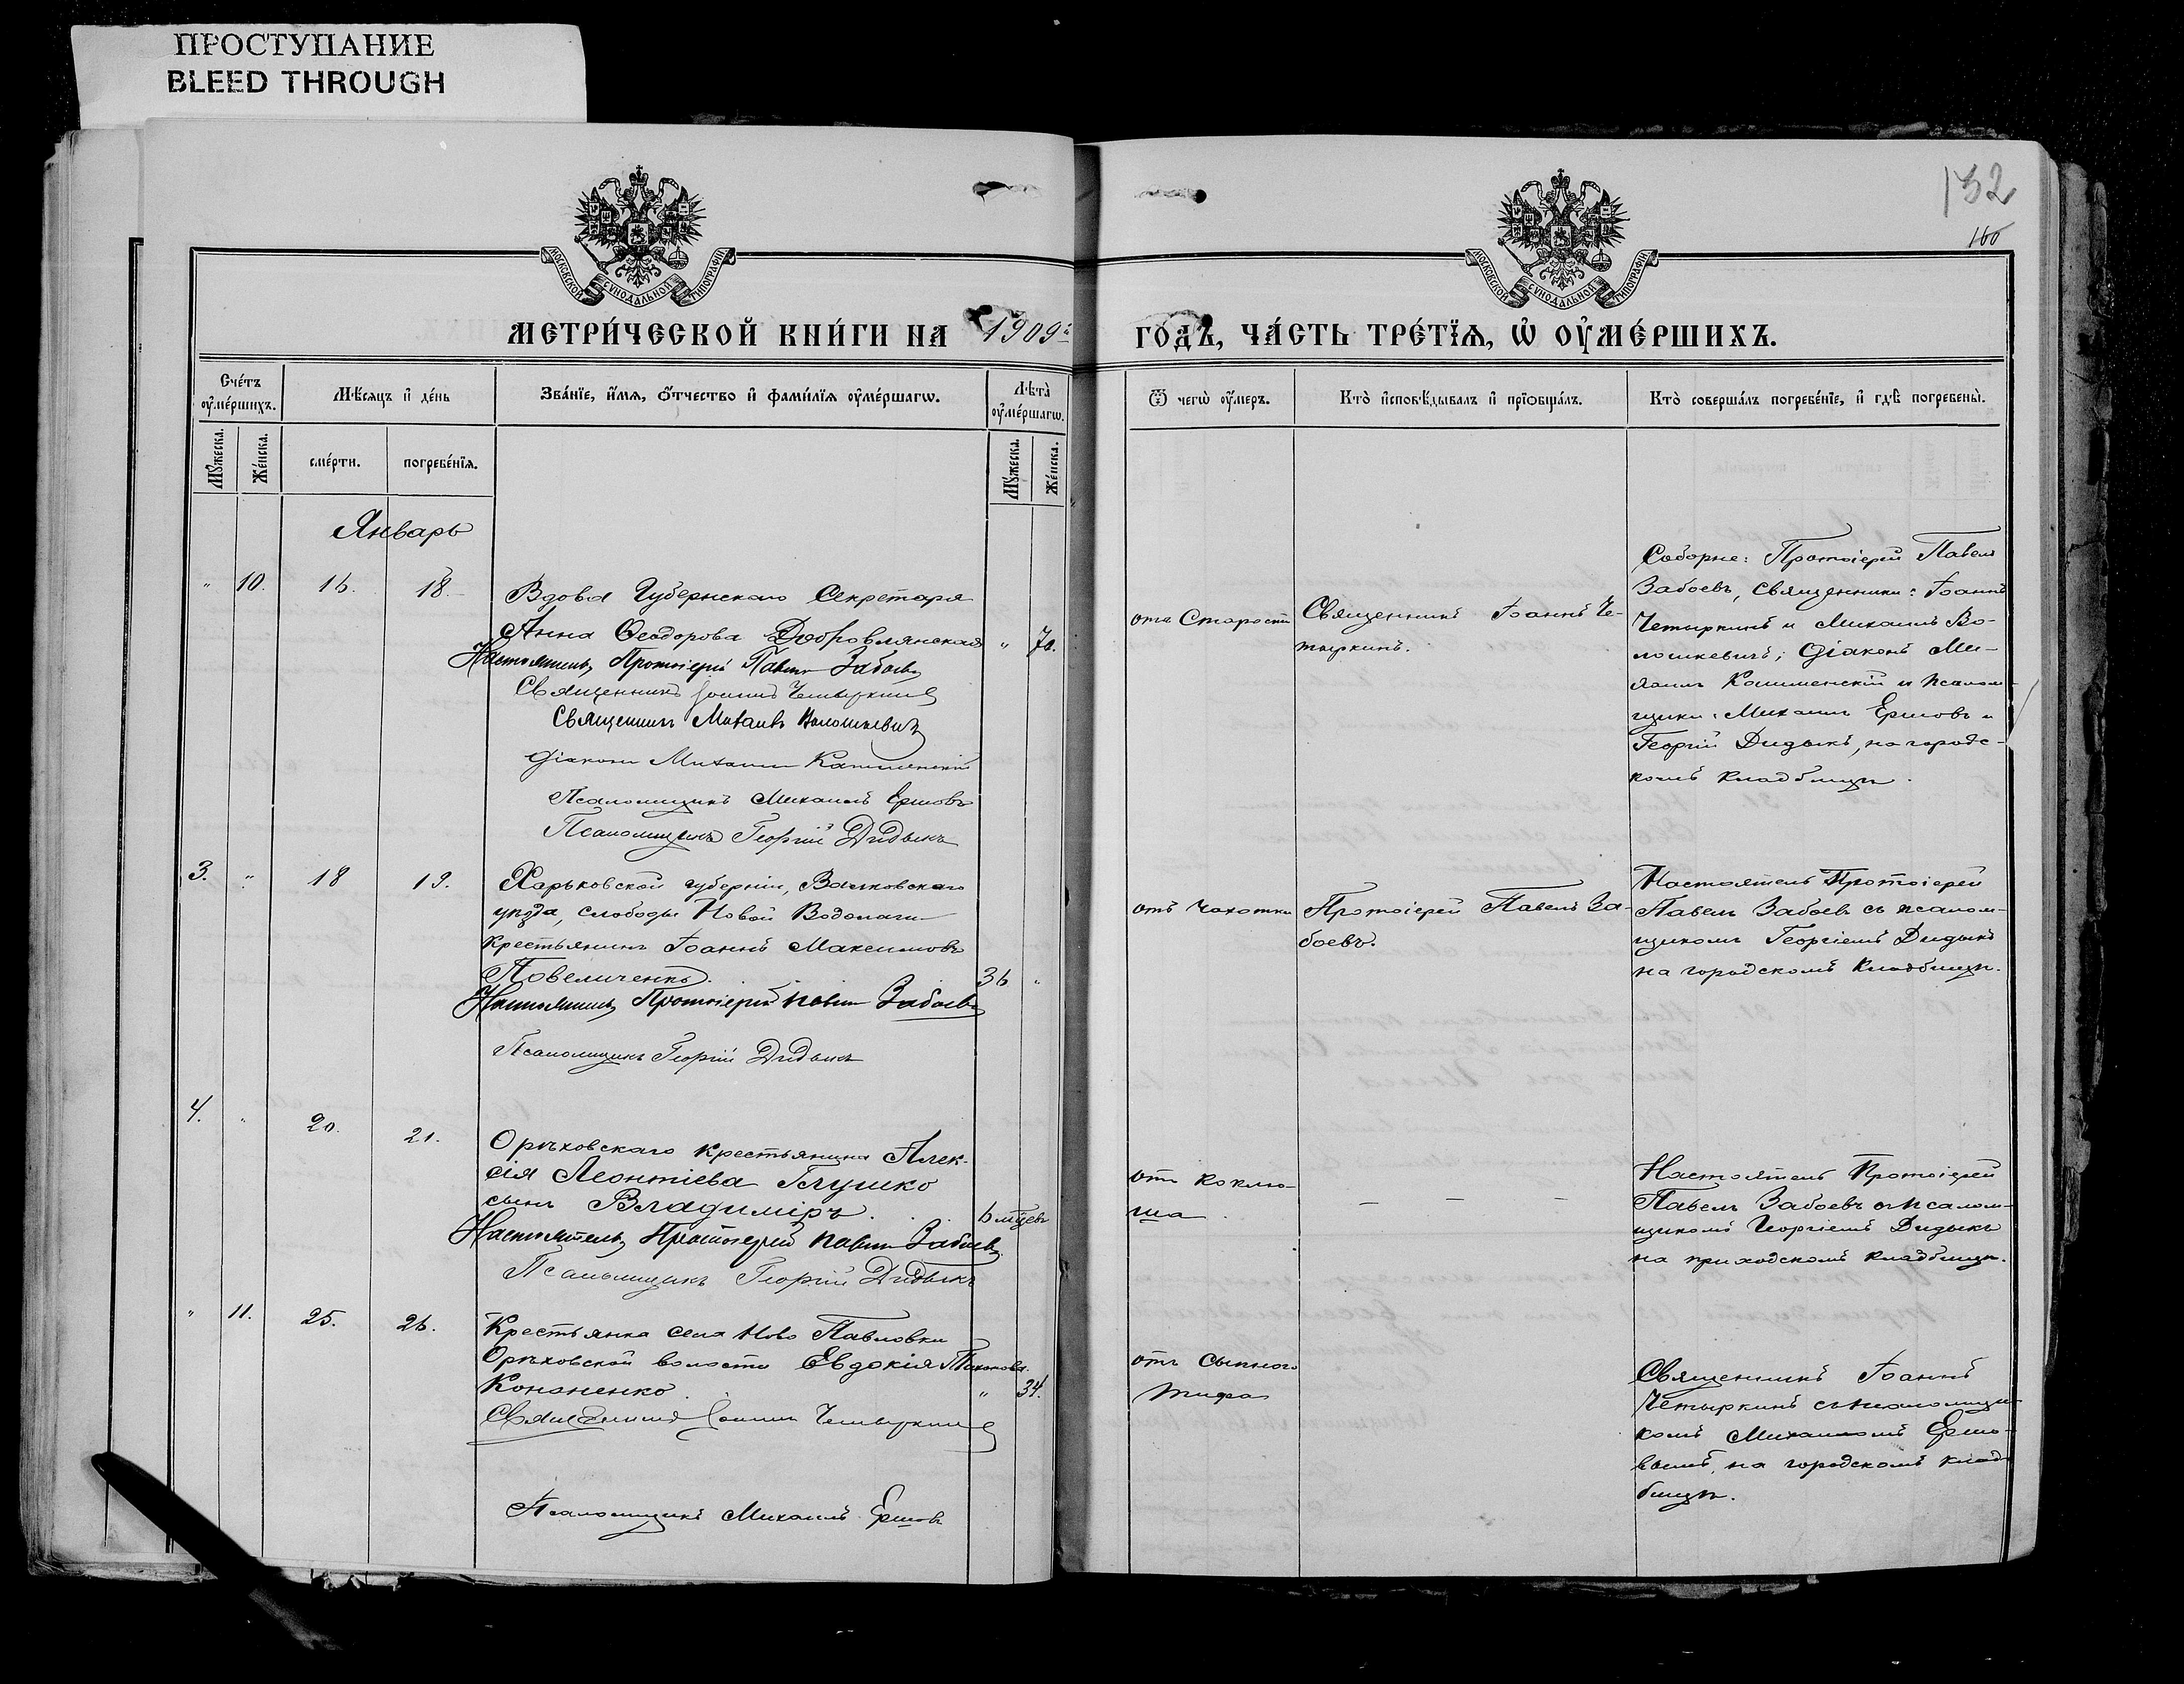 ПРОСТУПАНИЕ
BLEED THROUGH
132
166
МОСКОВСКОЙ СѴНОДАЛЬНОЙ ТИПОГРАФІИ
МОСКОВСКОЙ СѴНОДАЛЬНОЙ ТИПОГРАФІИ
МЕТРИ́ЧЕСКОЙ КНИ́ГИ НА 1909й ГО́ДЪ, ЧА́СТЬ ТРЕ́ТЇѦ, Ѡ҆ ОУ҆МЕ́РШИХЪ.
Сче́тъ оу҆ме́ршихъ.
Мѣ́сяцъ и҆ де́нь
Зва́нїе, и҆́мѧ, ѻ҆́тчество и҆ фами́лїѧ оу҆ме́ршагѡ.
Лѣ́та оу҆ме́ршагѡ.
Ѿ чегѡ̀ оу҆́меръ.
Кто̀ и҆сповѣ́дывалъ и҆ прїѻбща́лъ.
Кто̀ соверша́лъ погребе́нїе, и҆ гдѣ̀ погребены̀.
Му́жеска.
Же́нска.
сме́рти.
погребе́нїѧ.
Му́жеска.
Же́нска.
Январь
" 10. 16. 18.
Вдова Губернскаго Секретаря
Анна Ѳеодорова Добровлянская " 70.
Настоятель, Протоіерей Павелъ Забоевъ
Священникъ Іоаннъ Четыркинъ
Священникъ Михаилъ Волошкевичъ
Діаконъ Михаилъ Кашменскій
Псаломщикъ Михаилъ Ершовъ
Псаломщикъ Георгій Дидыкъ
отъ Старости
Священникъ Іоаннъ Че-
тыркинъ.
Соборне: Протоіерей Павелъ
Забоевъ, священники: Іоаннъ
Четыркинъ и Михаилъ Во-
лошкевичъ; Діаконъ Ми-
хаилъ Кашменскій и псалом-
щики: Михаилъ Ершовъ и
Георгій Дидыкъ, на городс-
комъ кладбищѣ.
3. " 18 19.
Харьковской губерніи, Валковскаго
уѣзда, слободы Новой Водолаги
крестьянинъ Іоаннъ Максимовъ
Повеличенко. 36 "
Настоятель, Протоіерей Павелъ Забоевъ
Псаломщикъ Георгій Дидыкъ
отъ чахотки
Протоіерей Павелъ За-
боевъ.
Настоятель Протоіерей
Павелъ Забоевъ съ псалом-
щикомъ Георгіемъ Дидыкъ
на городскомъ кладбищѣ.
4. " 20. 21.
Орѣховскаго крестьянина Алек-
сія Леонтіева Глушко
сынъ Владиміръ. 6 мцевъ
Настоятель, Протоіерей Павелъ Забоевъ
Псаломщикъ Георгій Дидыкъ
отъ коклю-
ша.
— — —
Настоятель Протоіерей
Павелъ Забоевъ съ псалом-
щикомъ Георгіемъ Дидыкъ
на приходскомъ кладбищѣ.
" 11. 25. 26.
Крестьянка села Ново Павловки
Орѣховской волости Евдокія
Кононенко. " 34.
Священникъ Іоаннъ Четыркинъ
Псаломщикъ Михаилъ Ершовъ
отъ сыпного
тифа
Священникъ Іоаннъ
Четыркинъ съ псаломщи-
комъ Михаиломъ Ершо-
вымъ, на городскомъ клад-
бищѣ.